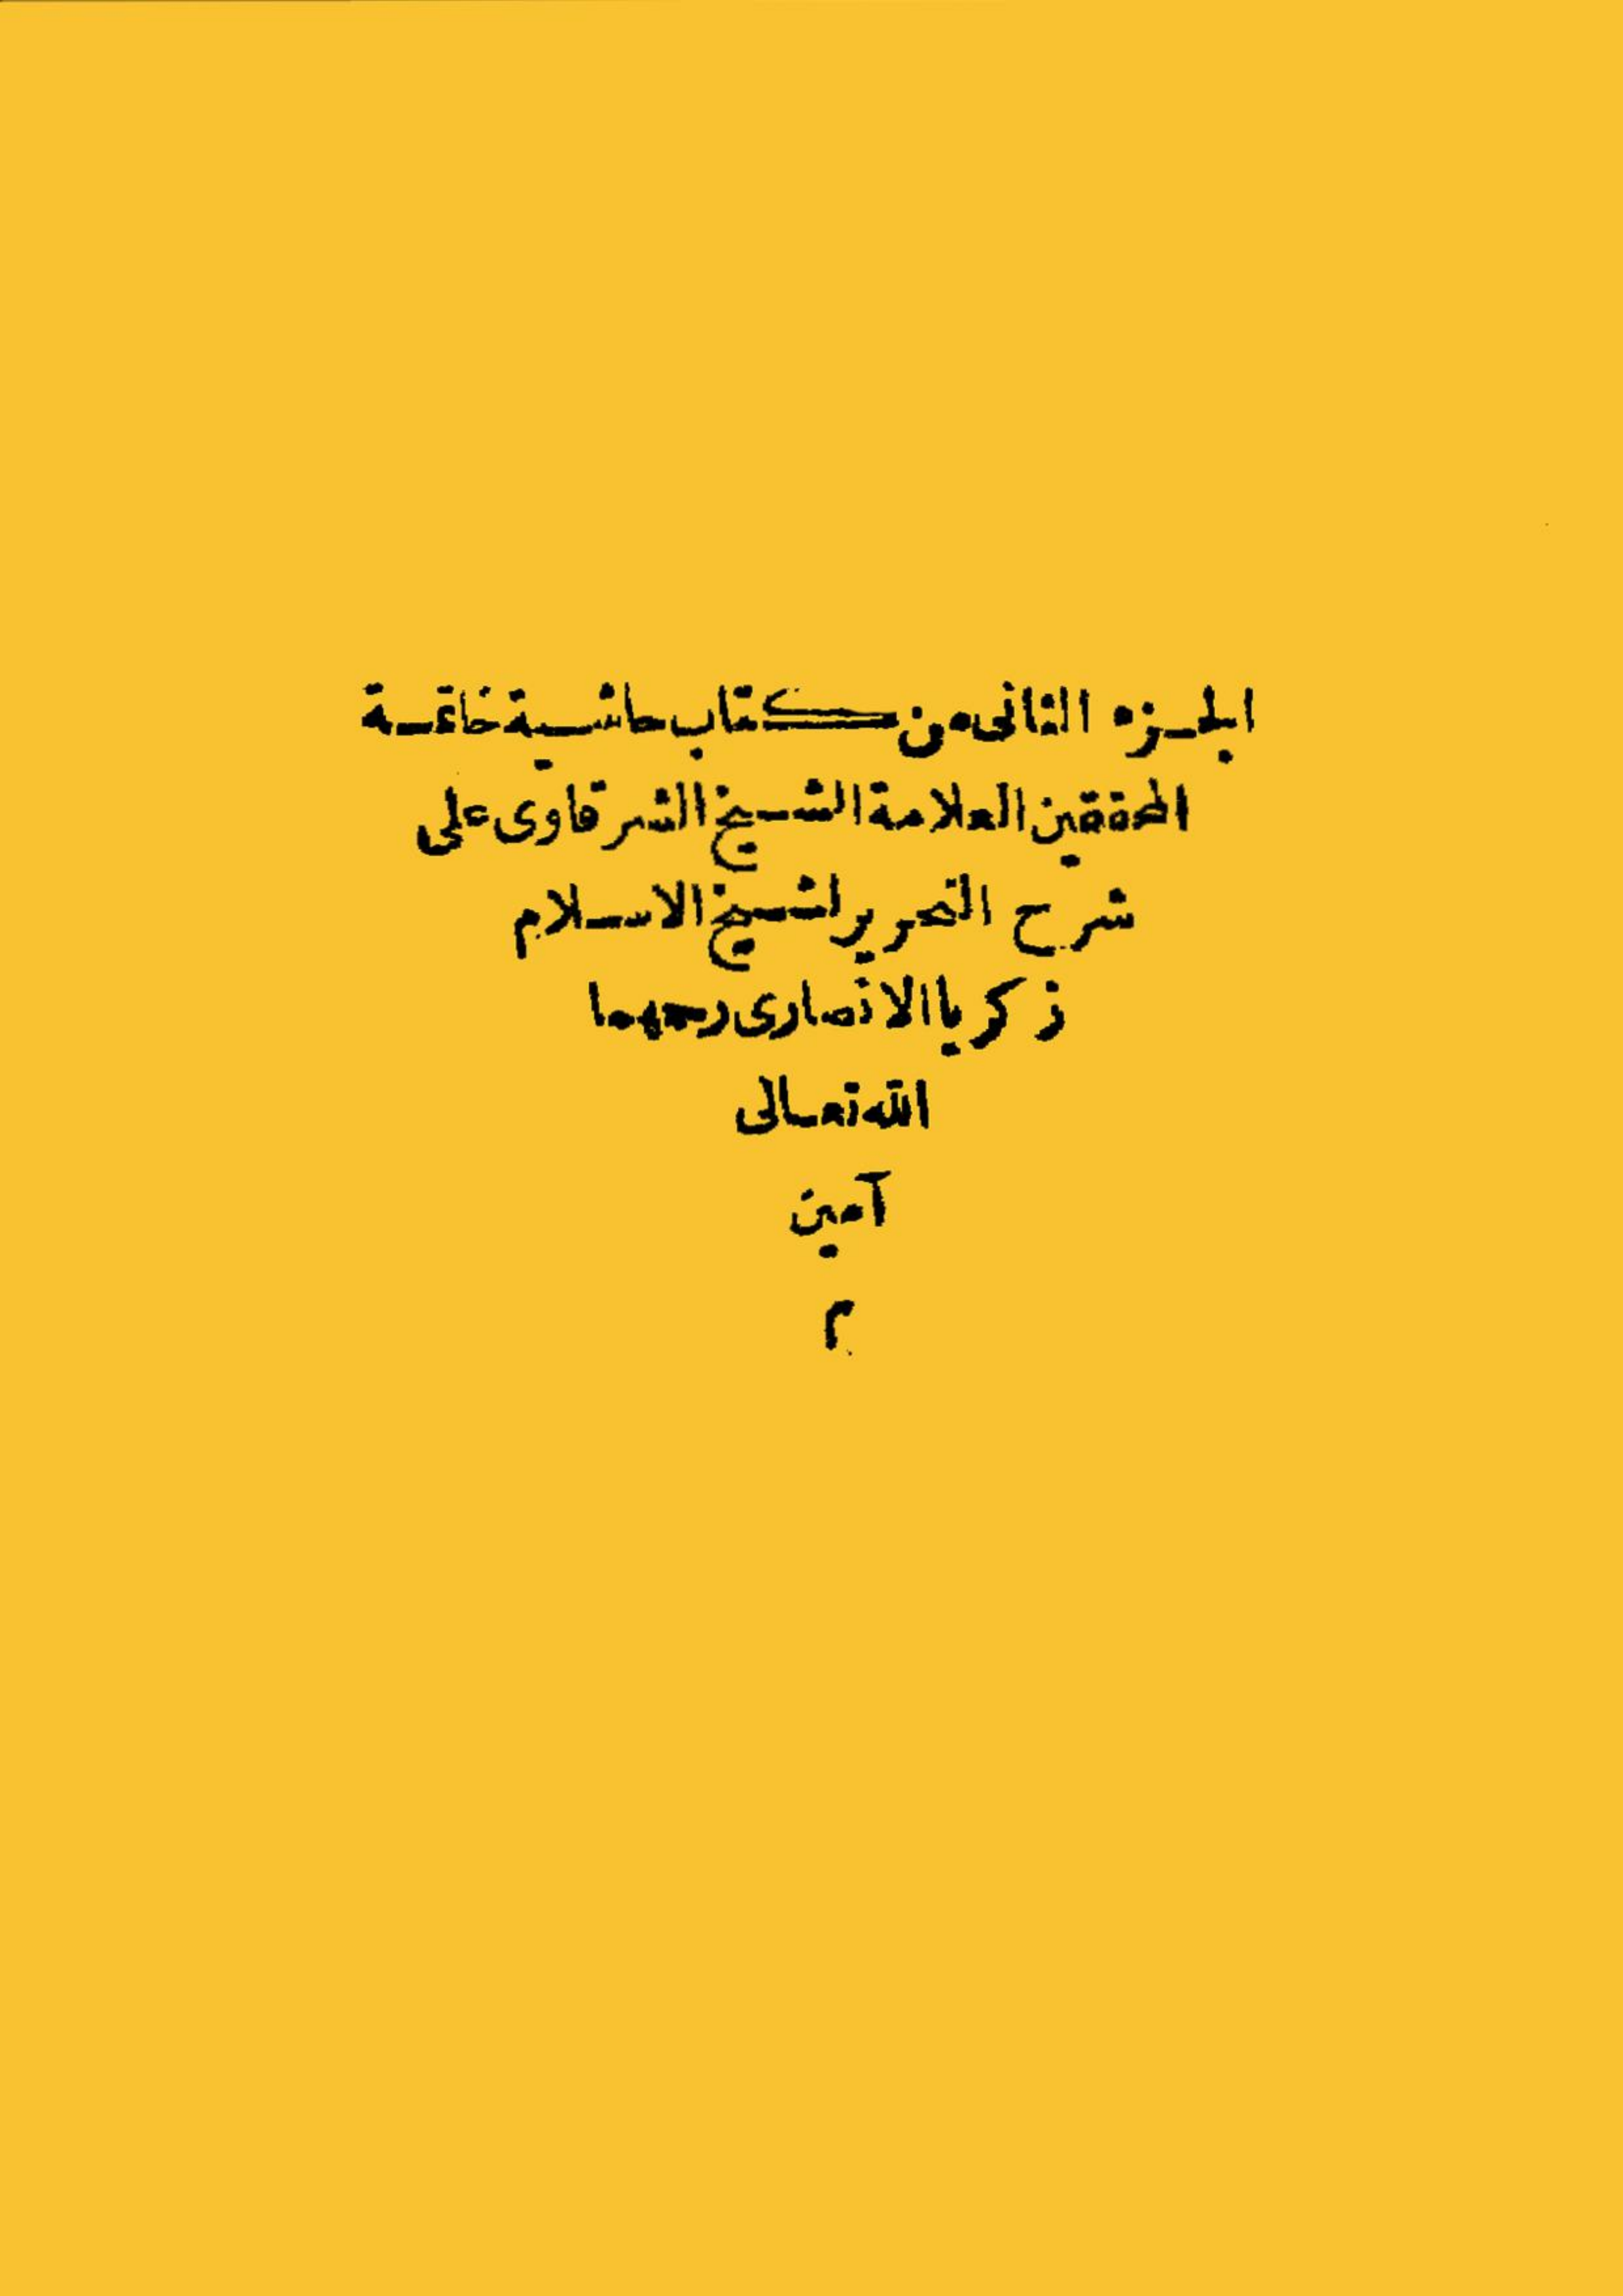 الجزء الثانى من كتاب حاشية خاتمة
المحققين العلامة الشيخ الشرقاوى على
شرح التحرير لشيخ الاسلام
زكريا الانصارى رحمهما
الله تعالى
آمين
م